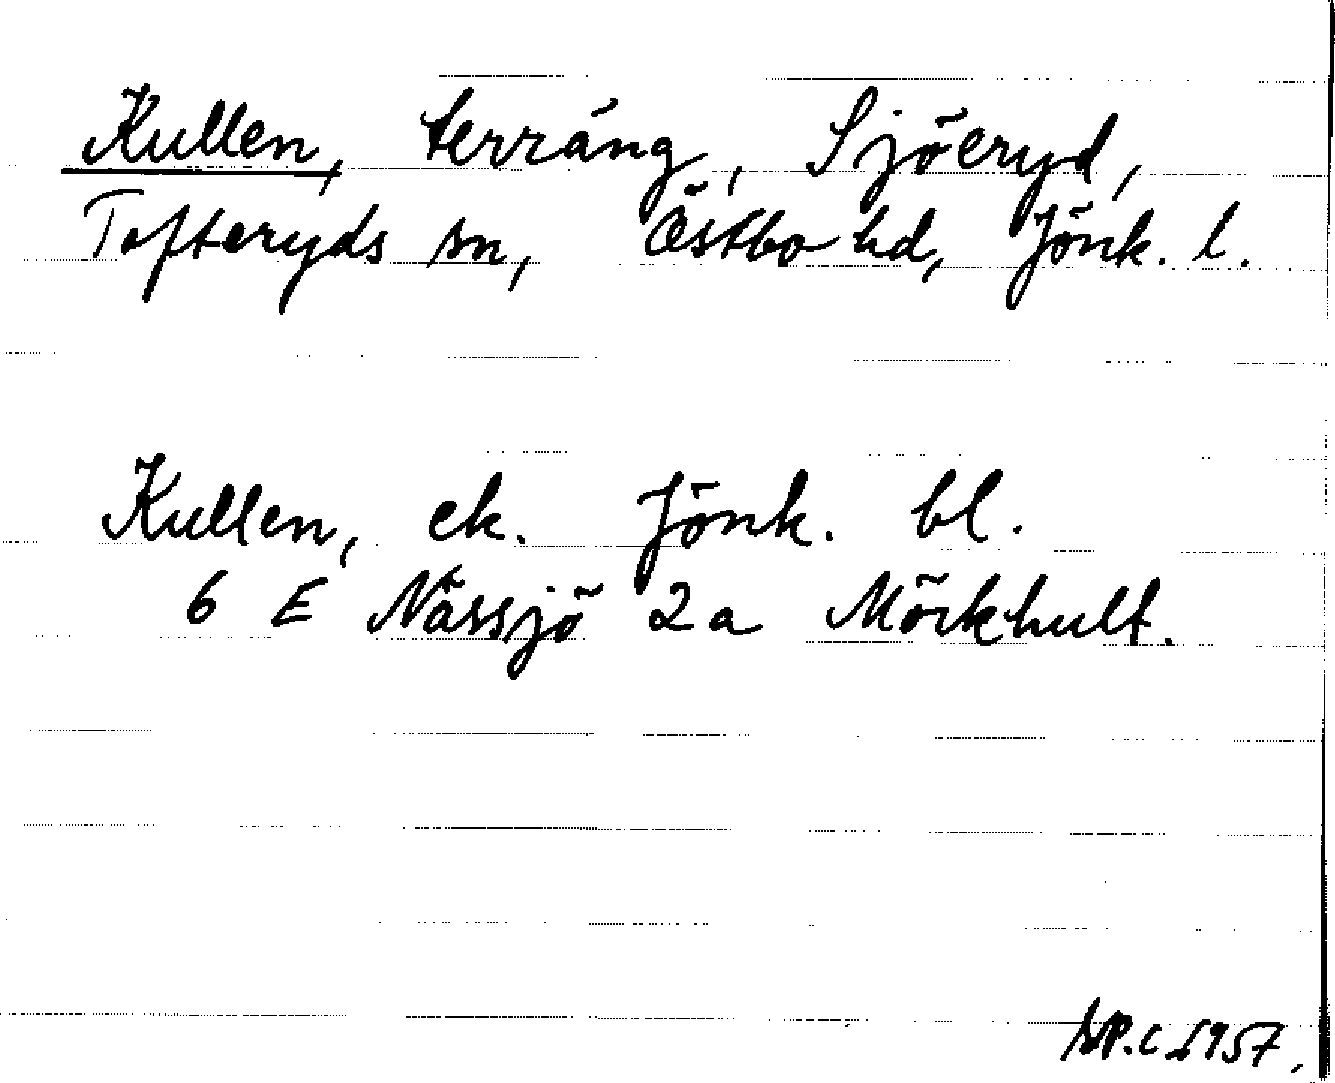 Kullen, terräng, Sjöeryd,
Tofteryds sn, Östbo hd, Jönk. l.
Kullen, ek. Jönk. bl.
6 E Nässjö 2a Mörkhult.
1957.